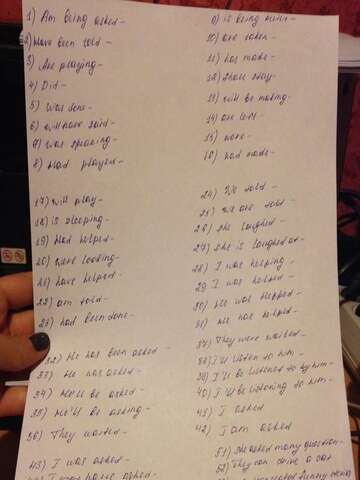 1) Am being asked-
2) Have been told-
3) Are playing-
4) Did-
5) Was done-
6) will have said-
7) Was speaking-
8) Had played-
9) is being
10) are taken-
11) has made-
12) Shall stay-
13) will be making-
14) are left-
15) were-
16) had made-
17) Will play-
18) is sleeping-
19) Had helped-
20) Were looking-
21) Have helped-
22) am told-
23) had been done-
24) We told-
25) We are told-
26) She laughed-
27) She is laughed at-
28) I was helping-
29) I was helped-
30) He was helped-
31) He has helped-
32) He has been asked-
33) He has asked-
34) He'll be asked-
35) He'll be asking-
36) They waited-
37) They were waited-
38) I'll listen to him-
39) I'll be listened to by him-
40) I'll be listening to him-
41) I asked
42) I am asked
43) I was asked-
51) She asked many question-
52) They can drive a car